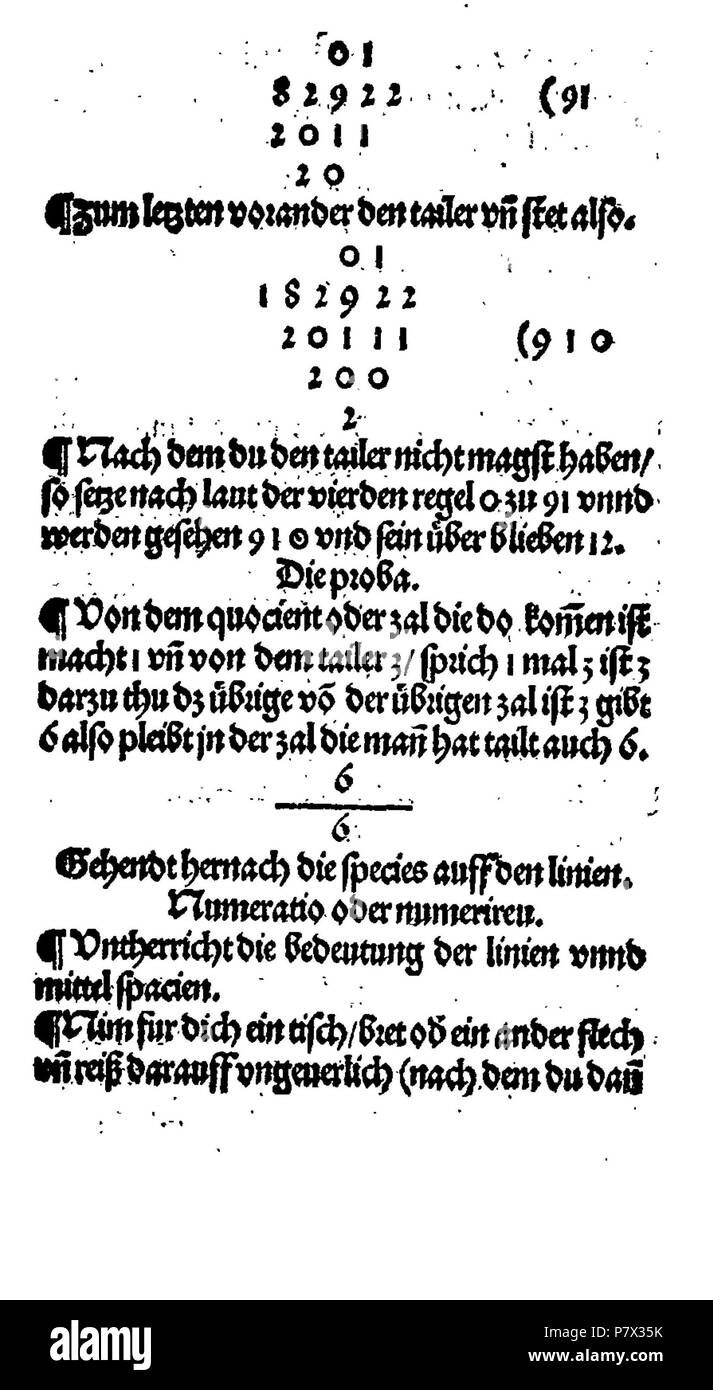 0 1
8 2 9 2 2 (91
2 0 1 1
2 0
¶ Zum letzten vorander den tailer vñ stet also.
0 1
1 8 2 9 2 2
2 0 1 1 1 (9 1 0
2 0 0
2
¶ Nach dem du den tailer nicht magst haben/
so setze nach laut der vierden regel 0 zu 91 vnnd
werden gesehen 9 1 0 vnd sein über blieben 12.
Die proba.
¶ Von dem quocient oder zal die do kom̃en ist
macht 1 vñ von dem tailer 3/ sprich 1 mal 3 ist 3
darzu thu dz übrige võ der übrigen zal ist 3 gibt
6 also pleibt jn der zal die mañ hat tailt auch 6.
6
6
Gehendt hernach die species auff den linien.
Numeratio oder numeriren.
¶ Vntherricht die bedeutung der linien vnnd
mittel spacien.
¶ Nim fur dich ein tisch/bret od̄ ein ander flech
vñ reiß darauff vngeuerlich (nach dem du dañ
alamy
Image ID: P7X35K
www.alamy.com